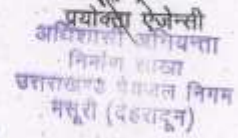 प्रयोक्ता ऐजेन्सी
अधिशासी अभियन्ता
निर्माण शाखा
उत्तराखण्ड पेयजल निगम
मसूरी (देहरादून)